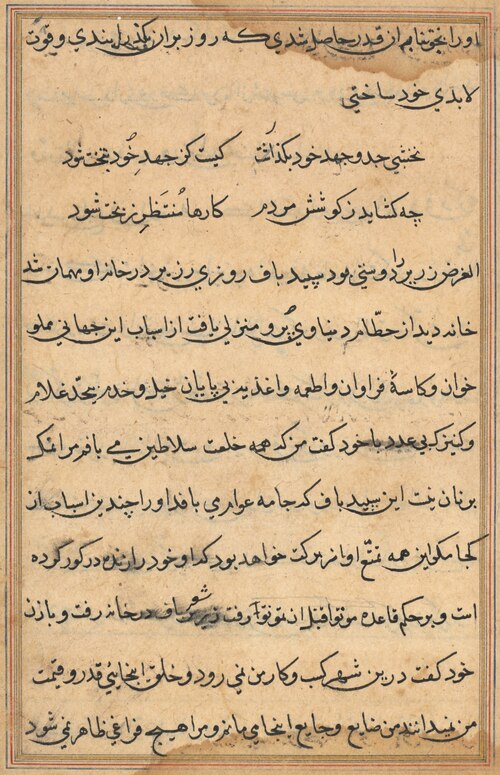 او را بجوتنا بم از قدر حاصل شدی که روز بروان بگذرانیدی و قوت
لابدی خود ساختی
نخشبی جد و جهد خود بگذاشت کیست کز جهدِ خُود بتخت شود
چه کشاید ز کوشش مردم کارها مُنتَظَرِ ز بخت شود
الغرض زریر را دوستی بود سپید باف روزی زریر در خانهٔ او مهمان شد
خانه دید از حطام دنیاوی پُر و منزلی یافت از اسباب این جهانی مملو
خوان و کاسهٔ فراوان و اطعمه و اغذیه بی پایان خیل و خدم بیحد غلام
و کنیزک بی عدد با خود کفت من که همه خلعت سلاطین می بافم مرا نمک
بر نان نیست این سپید باف که جامه عواری می بافد او را چندین اسباب از
کجا مکو این همه تمتع او از برکت خواهد بود که او خود را زنده در کور کرده
است و بر حکم قاعده موتوا قبل ان تموتوا رفت زریر در خانه رفت و با زن
خود کفت درین شهر کسب و کار من نمی رود و خلق اینجایی قدر و قیمت
من نمیدانند من ضایع و جایع اینجا می مانم و مرا هیچ فراغی ظاهر نمی شود